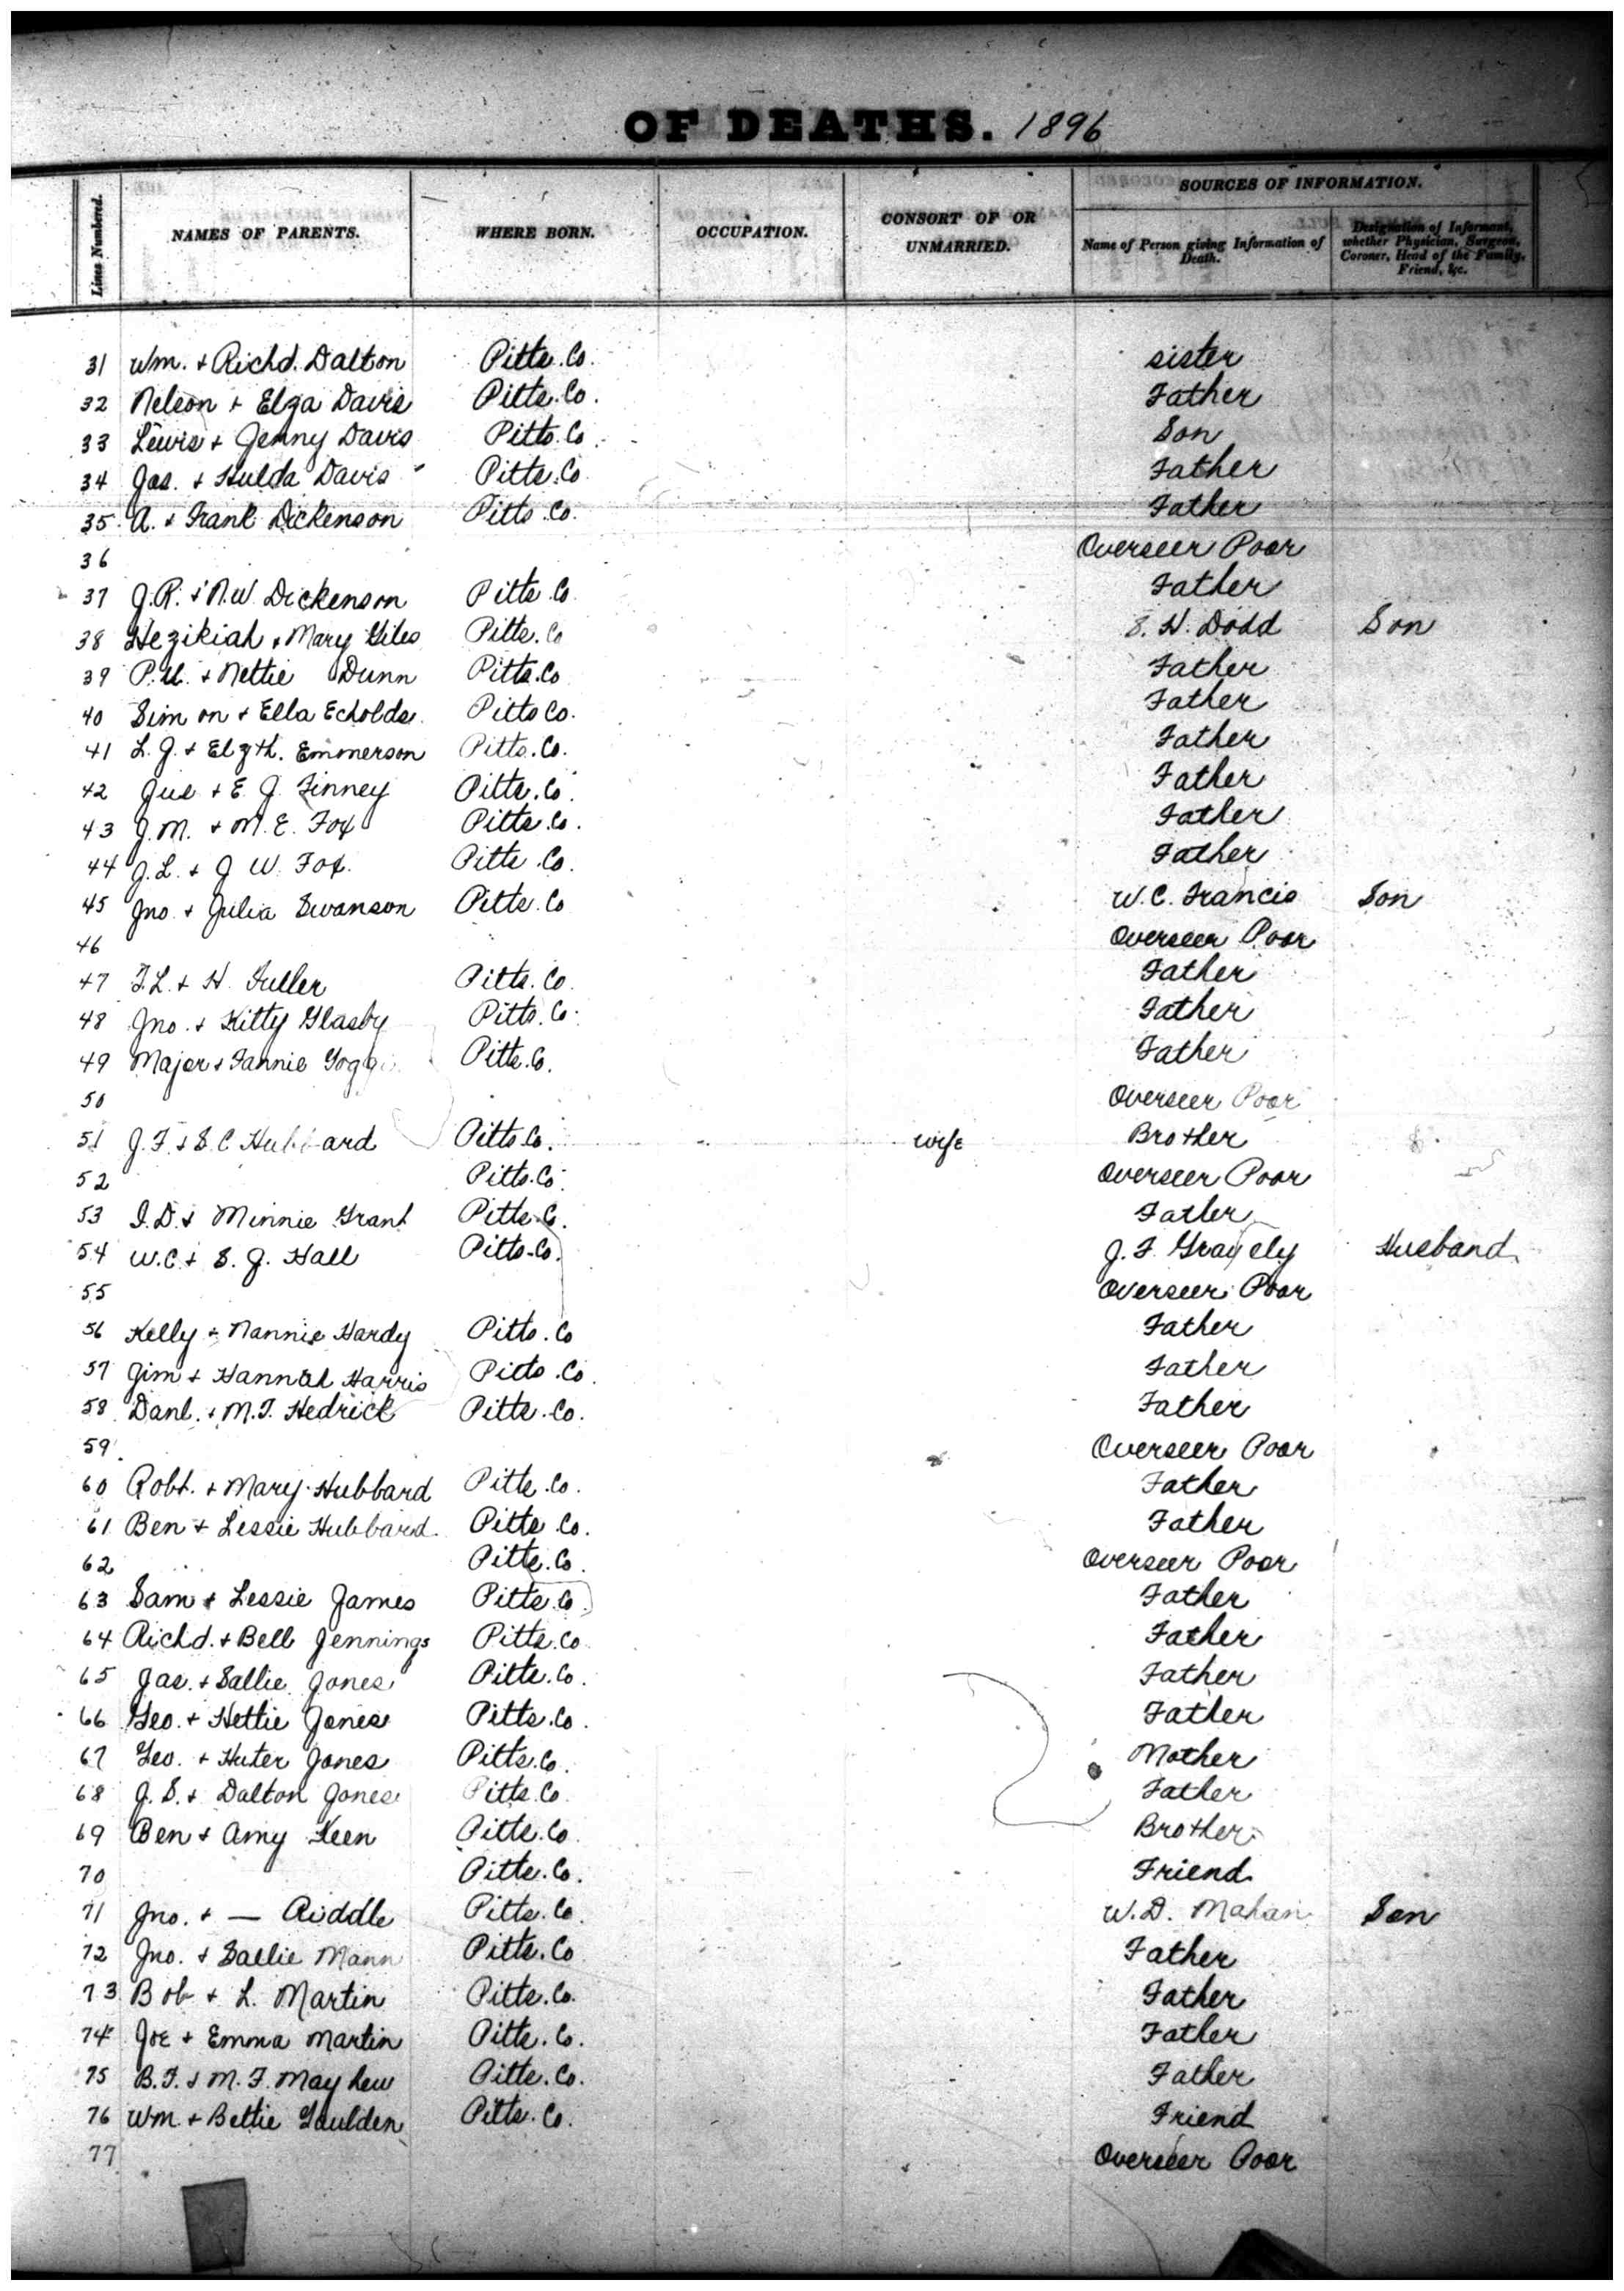 OF DEATHS. 1896
Lines Numbered.
NAMES OF PARENTS.
WHERE BORN.
OCCUPATION.
CONSORT OF OR UNMARRIED.
SOURCES OF INFORMATION.
Name of Person giving Information of Death.
Designation of Informant, whether Physician, Surgeon, Coroner, Head of the Family, Friend, &c.
31 Wm. + Richd. Dalton Pitts. Co. sister
32 Nelson + Elza Davis Pitts. Co. Father
33 Lewis + Jenny Davis Pitts. Co. Son
34 Jas. + Hulda Davis Pitts. Co Father
35 A. + Frank Dickenson Pitts. Co. Father
36 Overseer Poor
37 J.R. + N.W. Dickenson Pitts. Co. Father
38 Hezikiah + Mary Giles Pitts. Co S. H. Dodd Son
39 P.H. + Nettie Dunn Pitts. Co Father
40 Simon + Ella Echolds Pitts Co. Father
41 L. J. + Elzth. Emmerson Pitts. Co. Father
42 Jus + E. J. Finney Pitts. Co. Father
43 J.M. + M.E. Fox Pitts. Co. Father
44 J.L. + J W. Fox. Pitts. Co. Father
45 Jno. + Julia Swanson Pitts. Co W.C. Francis Son
46 Overseer Poor
47 T.L. + H. Fuller Pitts. Co. Father
48 Jno. + Kitty Glasby Pitts. Co. Father
49 Major + Fannie Pitts. Co. Father
50 Overseer Poor
51 J.F. + S.C. Hubbard Pitts. Co. wife Brother
52 Pitts. Co. Overseer Poor
53 I.D. + Minnie Grant Pitts. Co. Father
54 W.C. + S. J. Hall Pitts. Co. J. F. Gravely Husband
55 Overseer Poor
56 Kelly + Nannie Hardy Pitts. Co Father
57 Jim + Hannah Harris Pitts. Co. Father
58 Danl. + M.T. Hedrick Pitts. Co. Father
59 Overseer Poor
60 Robt. + Mary Hubbard Pitts. Co. Father
61 Ben + Lessie Hubbard. Pitts. Co. Father
62 Pitts. Co. Overseer Poor
63 Sam + Lessie James Pitts. Co Father
64 Richd. + Bell Jennings Pitts. Co. Father
65 Jas. + Sallie Jones Pitts. Co. Father
66 Geo. + Hettie Jones Pitts. Co. Father
67 Geo. + Huter Jones Pitts. Co. Mother
68 J. S. + Dalton Jones Pitts. Co. Father
69 Ben + Amy Keen Pitts. Co. Brother
70 Pitts. Co. Friend
71 Jno. + — Riddle Pitts. Co. W. D. Mahan Son
72 Jno. + Sallie Mann Pitts. Co Father
73 Bob + L. Martin Pitts. Co. Father
74 Joe + Emma Martin Pitts. Co. Father
75 B.F. + M.F. Mayhew Pitts. Co. Father
76 Wm. + Bettie Gaulden Pitts. Co. Friend
77 Overseer Poor